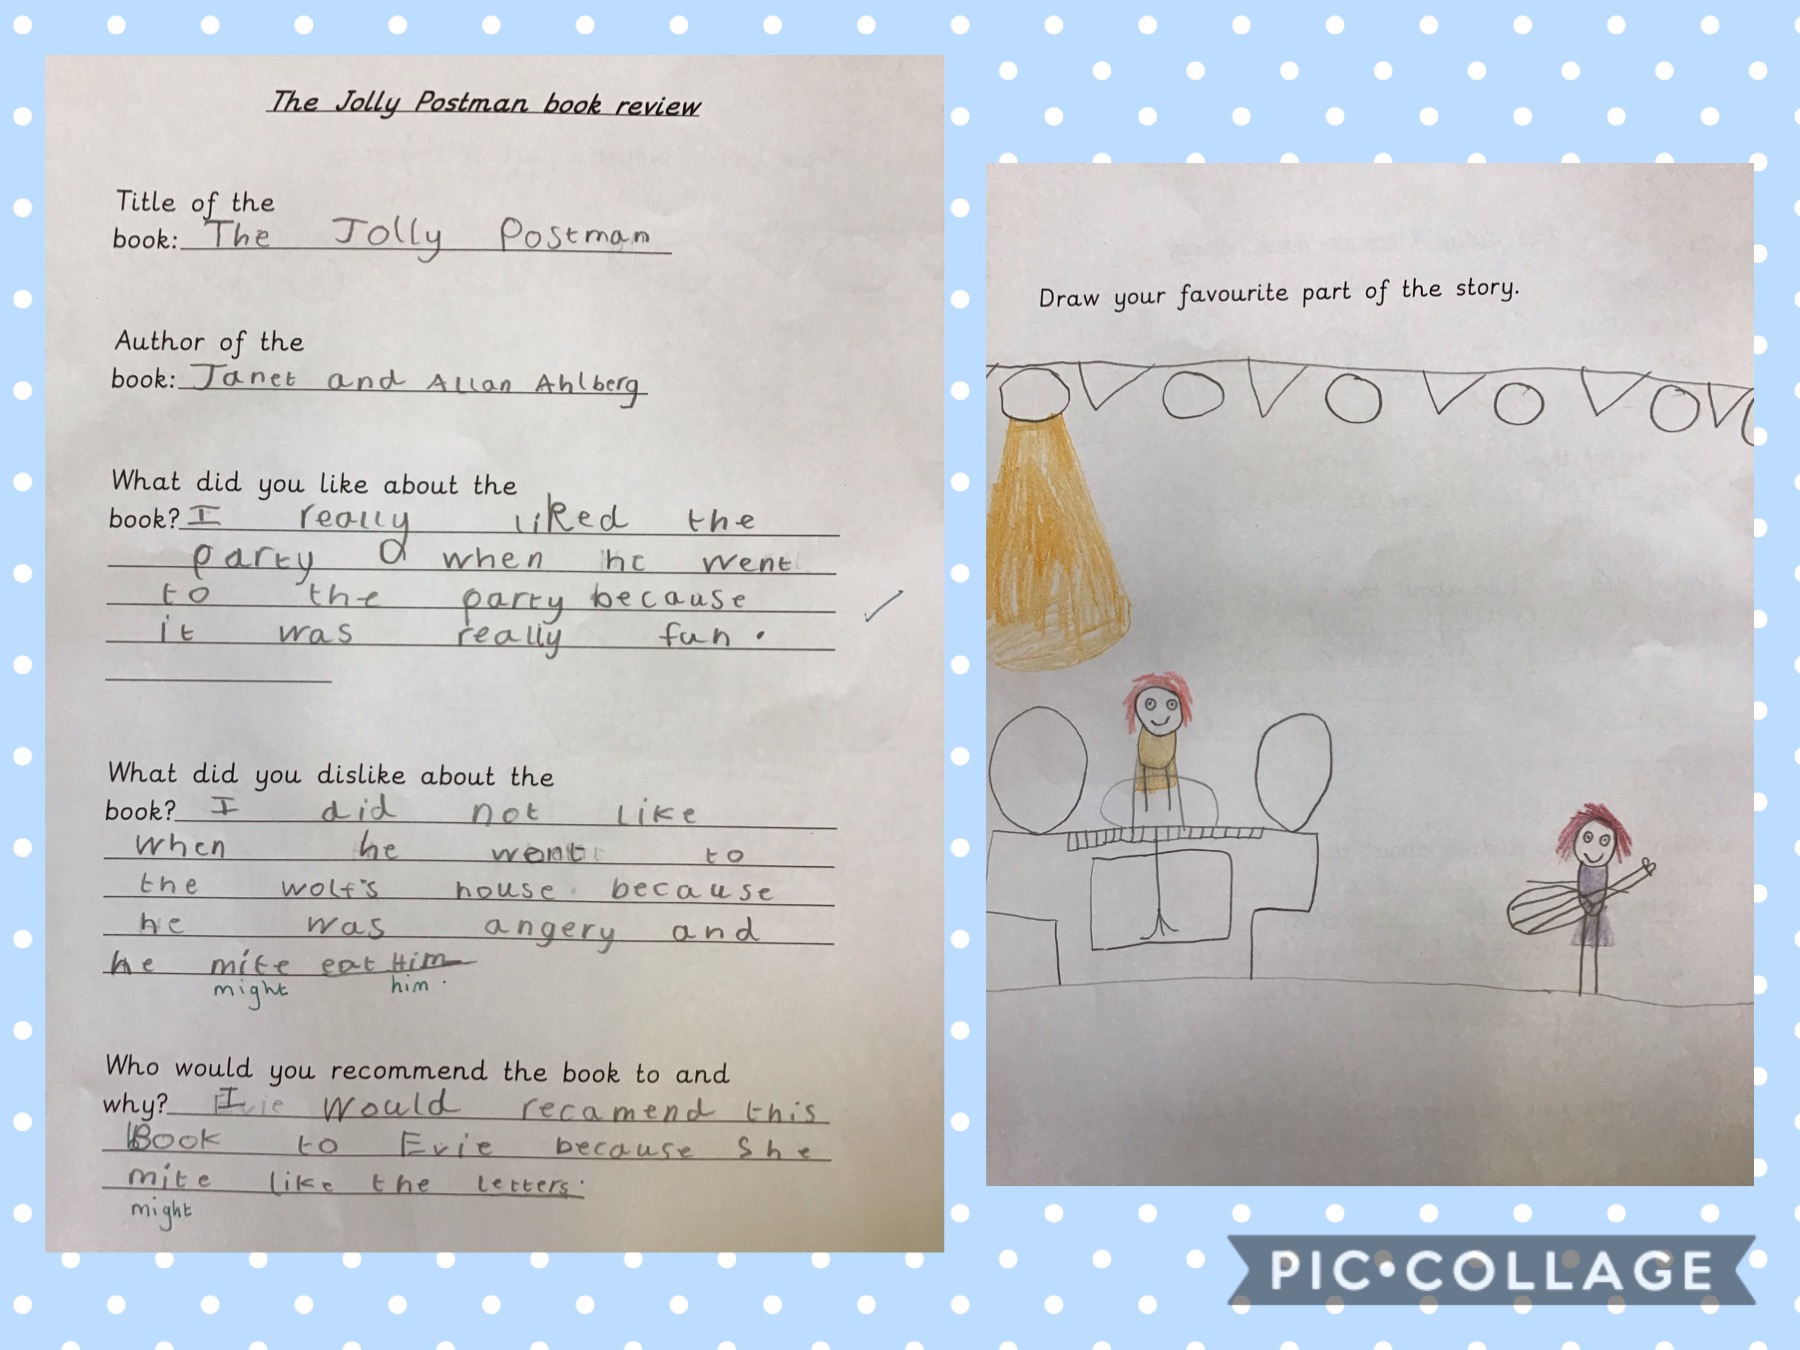 The Jolly Postman book review
Title of the
book: The Jolly Postman
Author of the
book: Janet and Allan Ahlberg
What did you like about the
book? I really liked the
party a when he went
to the party because
it was really fun.
What did you dislike about the
book? I did not like
when he went to
the wolf's house because
he was angery and
he mite eat Him
might him.
Who would you recommend the book to and
why? I would recamend this
Book to Evie because She
mite like the letters.
might
Draw your favourite part of the story.
PIC•COLLAGE